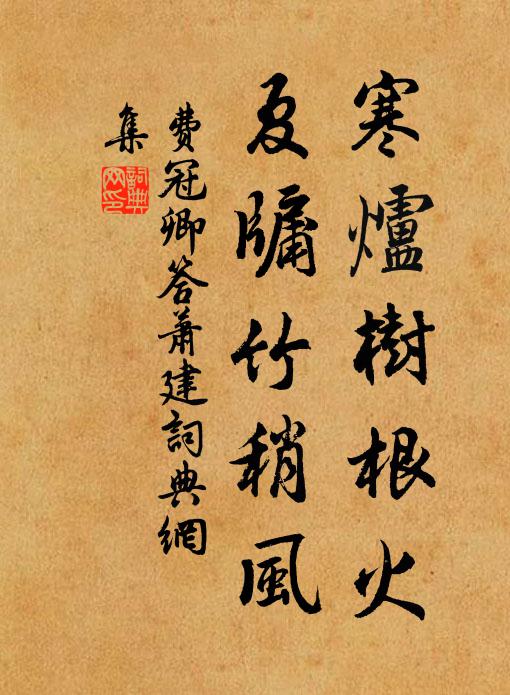 寒爐樹根火
夏牖竹稍風
費冠卿答蕭建詞典網
集
詞典網印